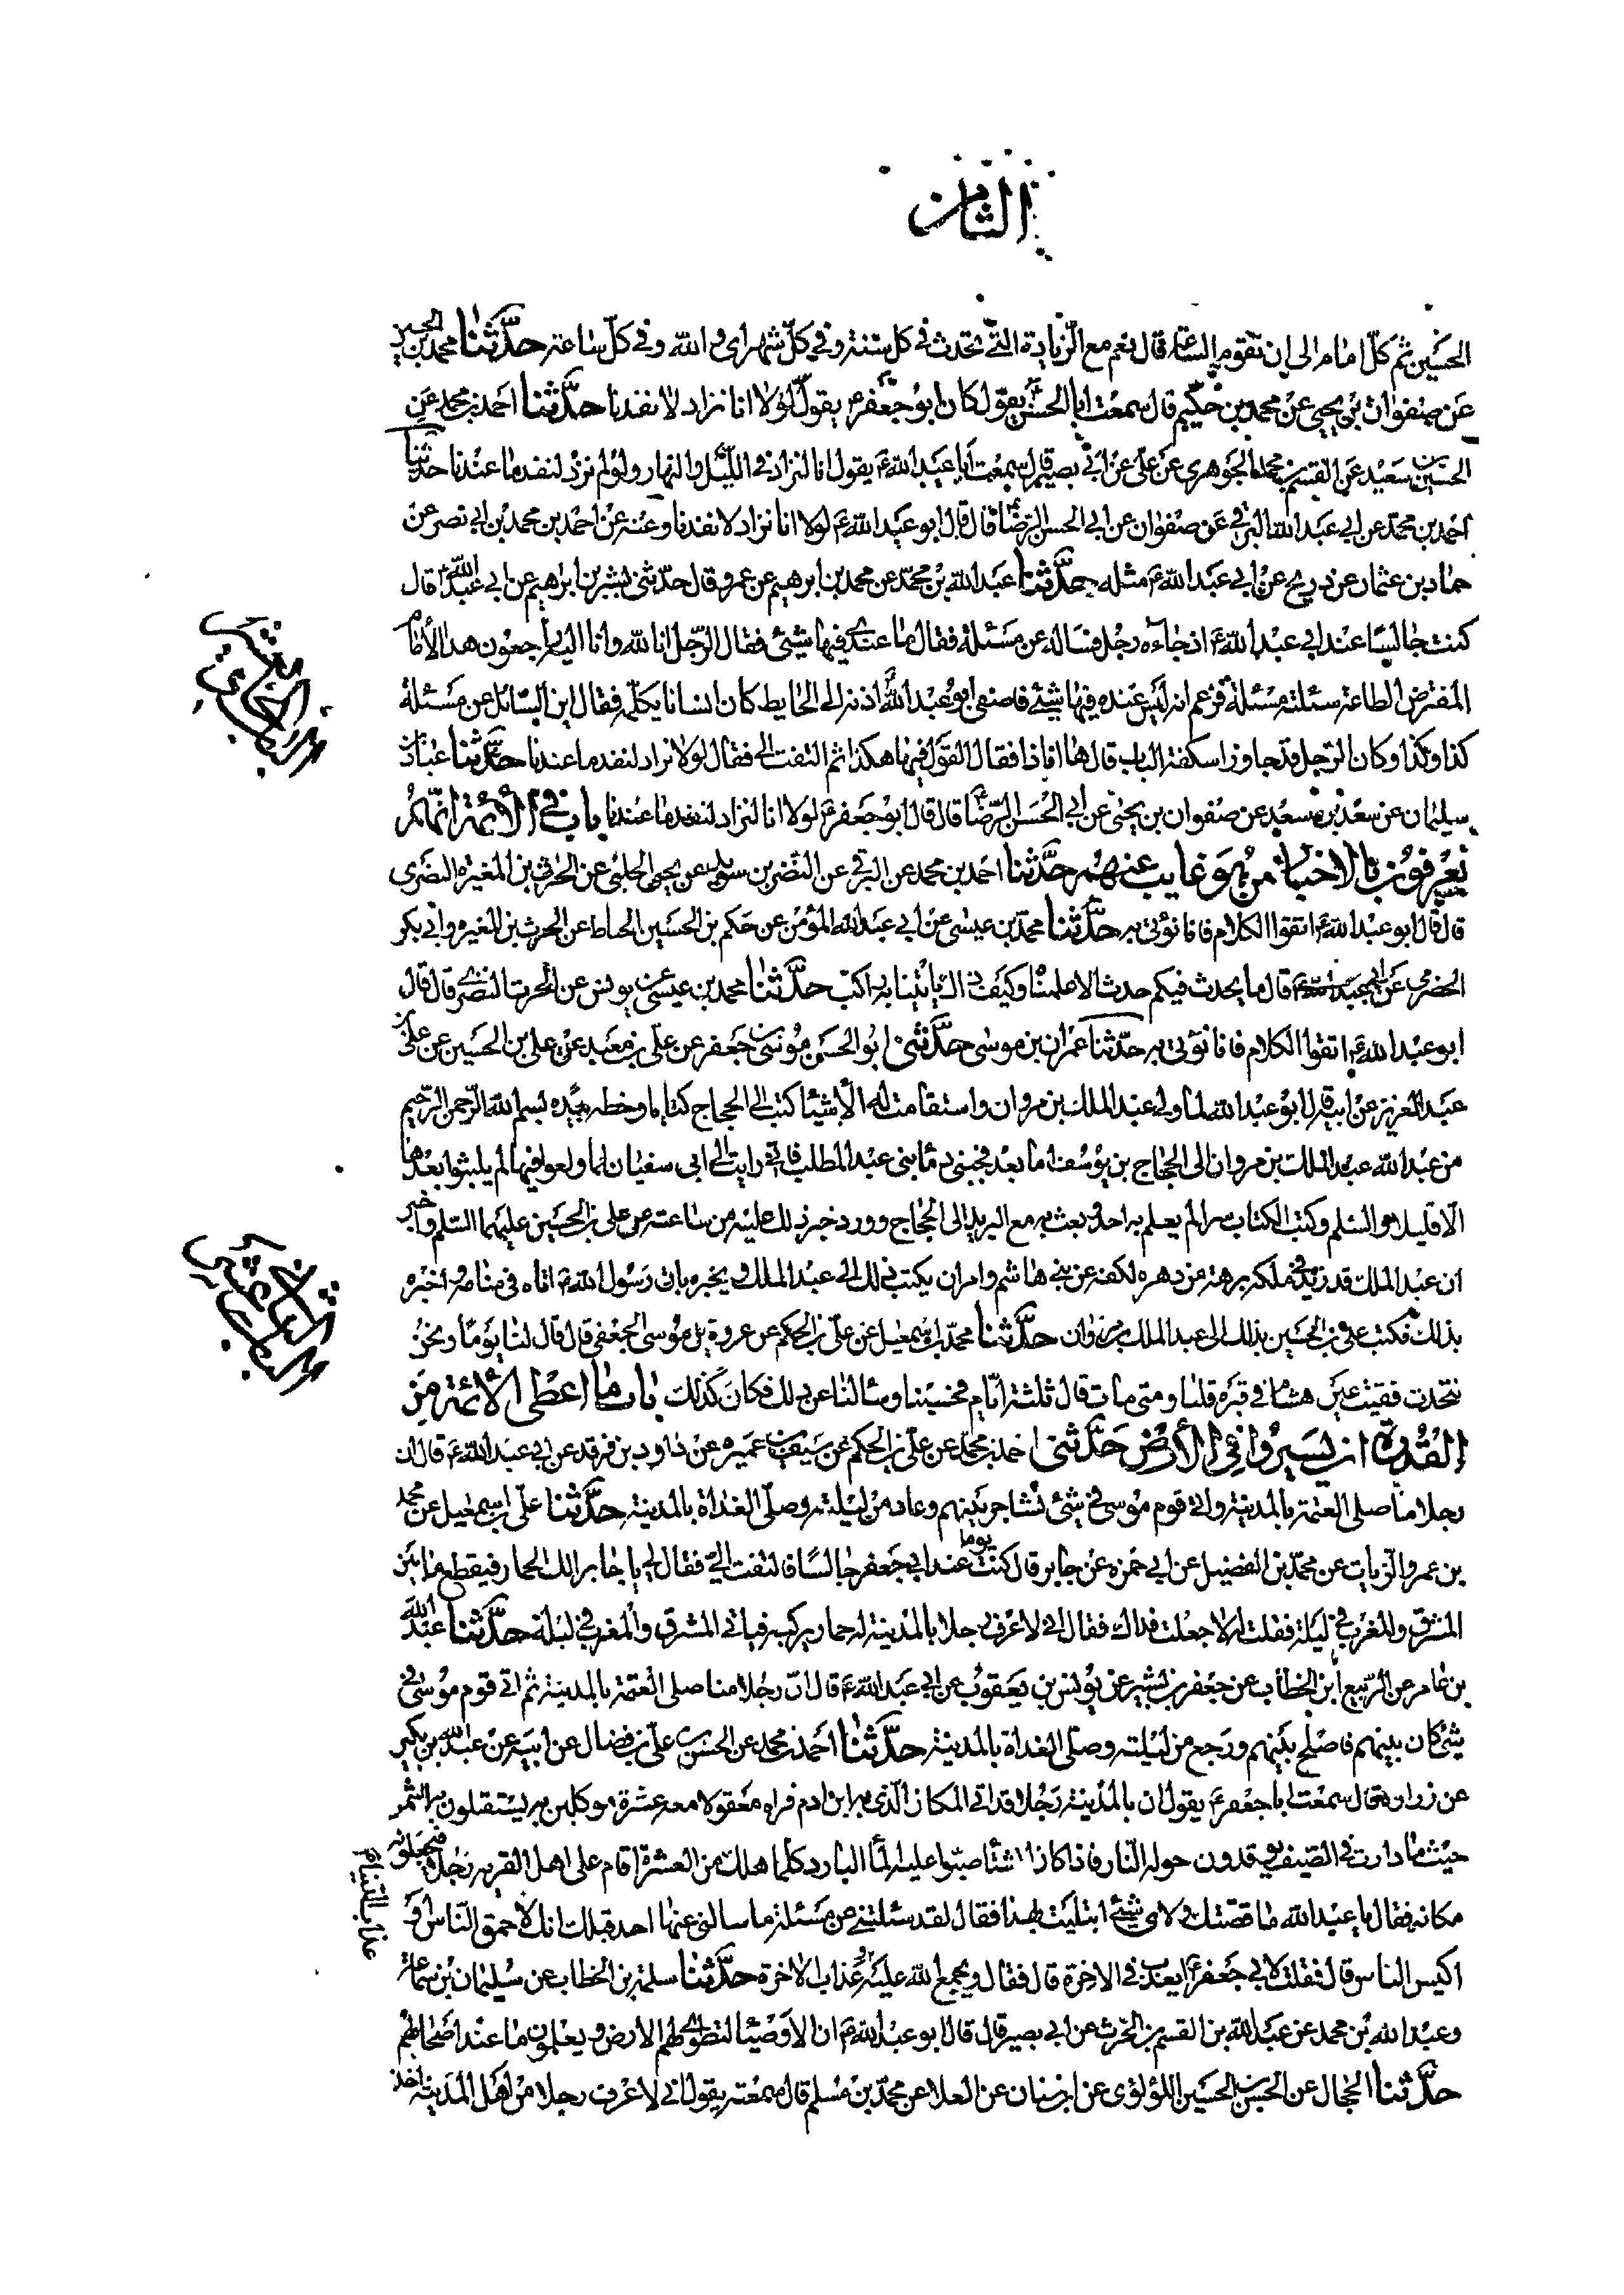 الثامن
الحسين ثم كلّ امام الى ان تقوم الساعة قال نعم مع الزيادة التى تحدث فى كل سنة وفى كلّ شهر اى و الله وفى كلّ ساعة حدّثنا محمد بن الحسين
عن صفوان بن يحيى عن محمد بن حكيم قال سمعت ابا الحسن يقول كان ابو جعفر يقول لولا انا نزاد لانفدنا حدّثنا احمد بن محمد عن
الحسين بن سعيد عن القسم بن محمد الجوهرى عن على عن ابى بصير قال سمعت ابا عبد الله ع يقول انا لنزاد فى الليل والنهار ولو لم نزد لنفد ما عندنا حدثنا
احمد بن محمد عن ابى عبد الله البرقى عن صفوان عن ابى الحسن الرضا قال قال ابو عبد الله ع لولا انا نزاد لانفدنا وعنه عن احمد بن محمد بن ابى نصر عن
حماد بن عثمان عن ذريح عن ابى عبد الله ع مثله حدّثنا عبد الله بن محمّد عن محمد بن ابرهيم عن عمرو قال حدّثنى بشير بن ابراهيم عن ابى عبد الله قال
كنت جالسا عند ابى عبد الله ع اذ جاءه رجل فساله عن مسئلة فقال ما عندى فيها شيئ فقال الرّجل انا لله وانا اليه راجعون هذا الأمام
المفترض الطاعة سئلته مسئلة فزعم انه ليس عنده فيها شيئ فاصغى ابو عبد الله اذنه الى الحايط كان انسانا يكلّمه فقال اين السّائل عن مسئلة
كذا وكذا وكان الرّجل قد جاوز اسكفة الباب قال ها انا ذا فقال القول فيها هكذا ثم التفت الى فقال لولا نزاد لنفد ما عندنا حدّثنا عباد بن
سليمان عن سعد بن سعد عن صفوان بن يحيى عن ابى الحسن الرّضا قال قال ابو جعفر ع لولا انا لنزاد لنفد ما عندنا باب فى الأئمة انّهم
يعرفون بالاخبار من هو غايب عنهم حدّثنا احمد بن محمد عن البرقى عن النضر بن سويد عن يحيى الحلبى عن الحرث بن المغيرة النضرى
قال قال ابو عبد الله ع اتقوا الكلام فانا نؤتى به حدّثنا محمّد بن عيسى عن ابى عبد الله المؤمن عن حكم بن الحسين الحناط عن الحرث بن المغيره وابى بكر
الحضرمى عن ابى عبد الله ع قال ما يحدث فيكم حدث الا علمناه وكيف ذاك ياتينا به راكب حدّثنا محمد بن عيسى عن يونس عن الحرث النضرى قال قال
ابو عبد الله ع اتقوا الكلام فانا نؤتى به حدّثنا عمران بن موسى حدّثنى ابو الحسن موسى بن جعفر عن على بن معبد عن على بن الحسين عن على بن
عبد العزيز عن ابيه قال ابو عبد الله لما ولى عبد الملك بن مروان واستقامت له الأشيا كتب الى الحجاج كتابا وخطه بيده بسم الله الرّحمن الرّحيم
من عبد الله عبد الملك بن مروان الى الحجاج بن يوسف اما بعد فجنبنى دما بنى عبد المطلب فانى رايت ال ابى سفيان لما ولعوا فيها لم يلبثوا بعدها
الا قليلا والسّلم وكتب الكتاب سرا لم يعلم به احد وبعث به مع البريد الى الحجاج وورد خبر ذلك عليه من ساعته عن على بن الحسين عليهما السّلم واخبر
ان عبد الملك قد زيد فى ملكه برهة من دهره لكفه عن بنى هاشم وامر ان يكتب ذلك الى عبد الملك ويخبره بان رسول الله ع اتاه فى منامه و اخبره
بذلك فكتب على بن الحسين بذلك الى عبد الملك بن مروان حدّثنا محمّد بن اسمعيل عن علىّ بن الحكم عن عروة بن موسى الجعفى قال قال لنا يوما ونحن
نتحدث فقيت عين هشام فى قبره قلنا و متى مات قال ثلثة ايّام فحسبنا وسالنا عن ذلك فكان كذلك باب ما اعطى الأئمة من
القدرة ان يسيروا فى الأرض حدّثنى احمد بن محمد عن علىّ بن الحكم عن سيف بن عميره عن داود بن فرقد عن ابى عبد الله ع قال ان
رجلا منا صلى العتمة بالمدينة واتى قوم موسى فى شيئ تشاجر بينهم وعاد من ليلته وصلّى الغداة بالمدينة حدّثنا علىّ بن اسمعيل عن محمد
بن عمرو الزيات عن محمّد بن الفضيل عن ابى حمزه عن جابر قال كنت يوما عند ابى جعفر جالسا فالتفت الىّ فقال لى يا جابر الك حمار فيقطع ما بين
المشرق والمغرب فى ليلة فقلت له لا جعلت فداك فقال انى لاعرف رجلا بالمدينة له حمار يركبه فياتى المشرق والمغرب فى ليلة حدّثنا عبد الله
بن عامر عن الرّبيع ابن الخطاب عن جعفر بن بشير عن يونس بن يعقوب عن ابى عبد الله ع قال انّ رجلا منا صلى العتمة بالمدينة ثم اتى قوم موسى فى
شيئ كان بينهم فاصلح بينهم ورجع من ليلته وصلى الغداة بالمدينة حدّثنا احمد بن محمد عن الحسن بن علىّ بن فضال عن ابيه عن عبد الله بن بكير
عن زرارة قال سمعت ابا جعفر ع يقول ان بالمدينة رجلا قد اتى المكان الّذى به ابن ادم فراه معقولا معه عشرة موكلين به يستقبلون به الشمس
حيث ما دارت فى الصّيف يوقدون حوله النّار فاذا كان الشتا صبّوا عليه الما البارد كلما هلك من العشرة اقام على اهل القرية رجلا فيجعلونه
مكانه فقال يا عبد الله ما قصتك ولاى شيئ ابتليت بهذا فقال لقد سئلتنى عن مسئلة ما سالنى عنها احد قبلك انك لاحمق النّاس او
اكيس الناس قال فقلت لابى جعفر ايعذب فى الاخرة قال فقال ويجمع الله عليه عذاب الاخرة حدّثنا سلمة بن الخطاب عن سليمان بن سماعة
وعبد الله بن محمد عن عبد الله بن القسم بن الحرث عن ابى بصير قال قال ابو عبد الله ع ان الأوصيا لتطوى لهم الأرض ويعلمون ما عند اصحابهم
حدّثنا الحجال عن الحسن بن الحسين اللؤلؤى عن ابن سنان عن العلا عن محمّد بن مسلم قال سمعته يقول انى لاعرف رجلا من اهل المدينة اخذ